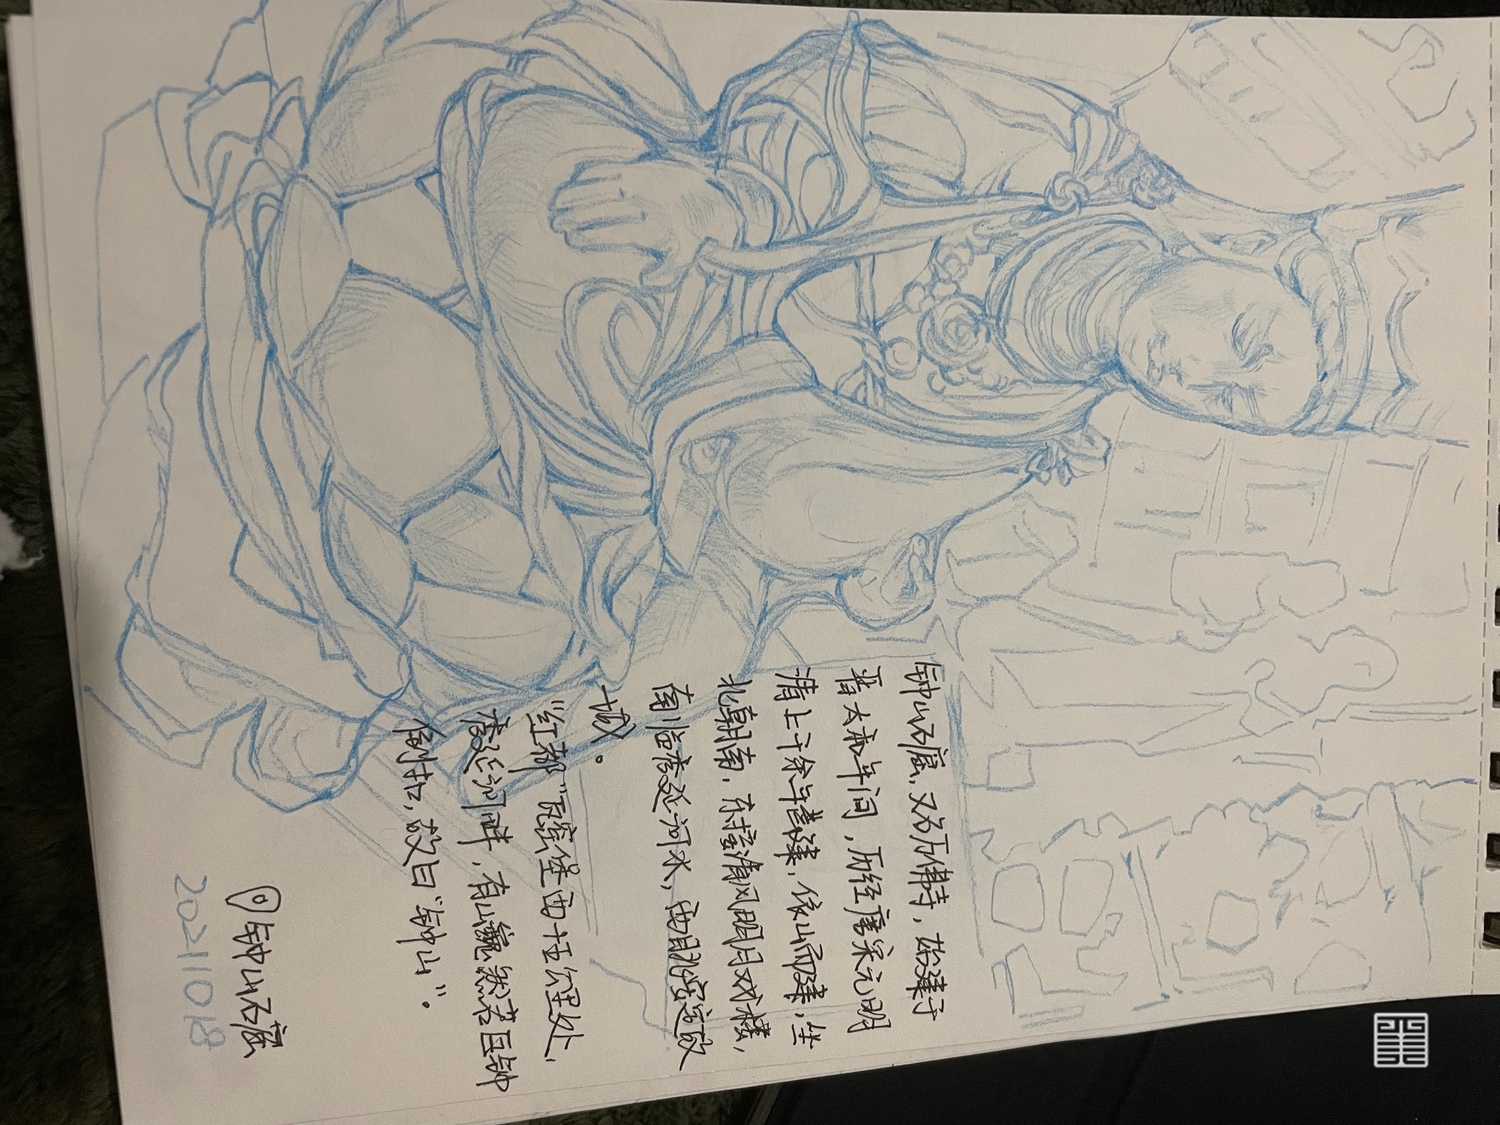 钟山石窟，又名万佛寺，始建于
晋太和年间，历经唐宋元明
清上千余年續建，依山而建，坐
北朝南，东接清风明月戏楼，
南临秀延河水，西眺安定故
城。
“红都”瓦窑堡西十五公里处，
秀延河畔，有山巍然若巨钟
倒扣，故曰“钟山”。
钟山石窟
20211018